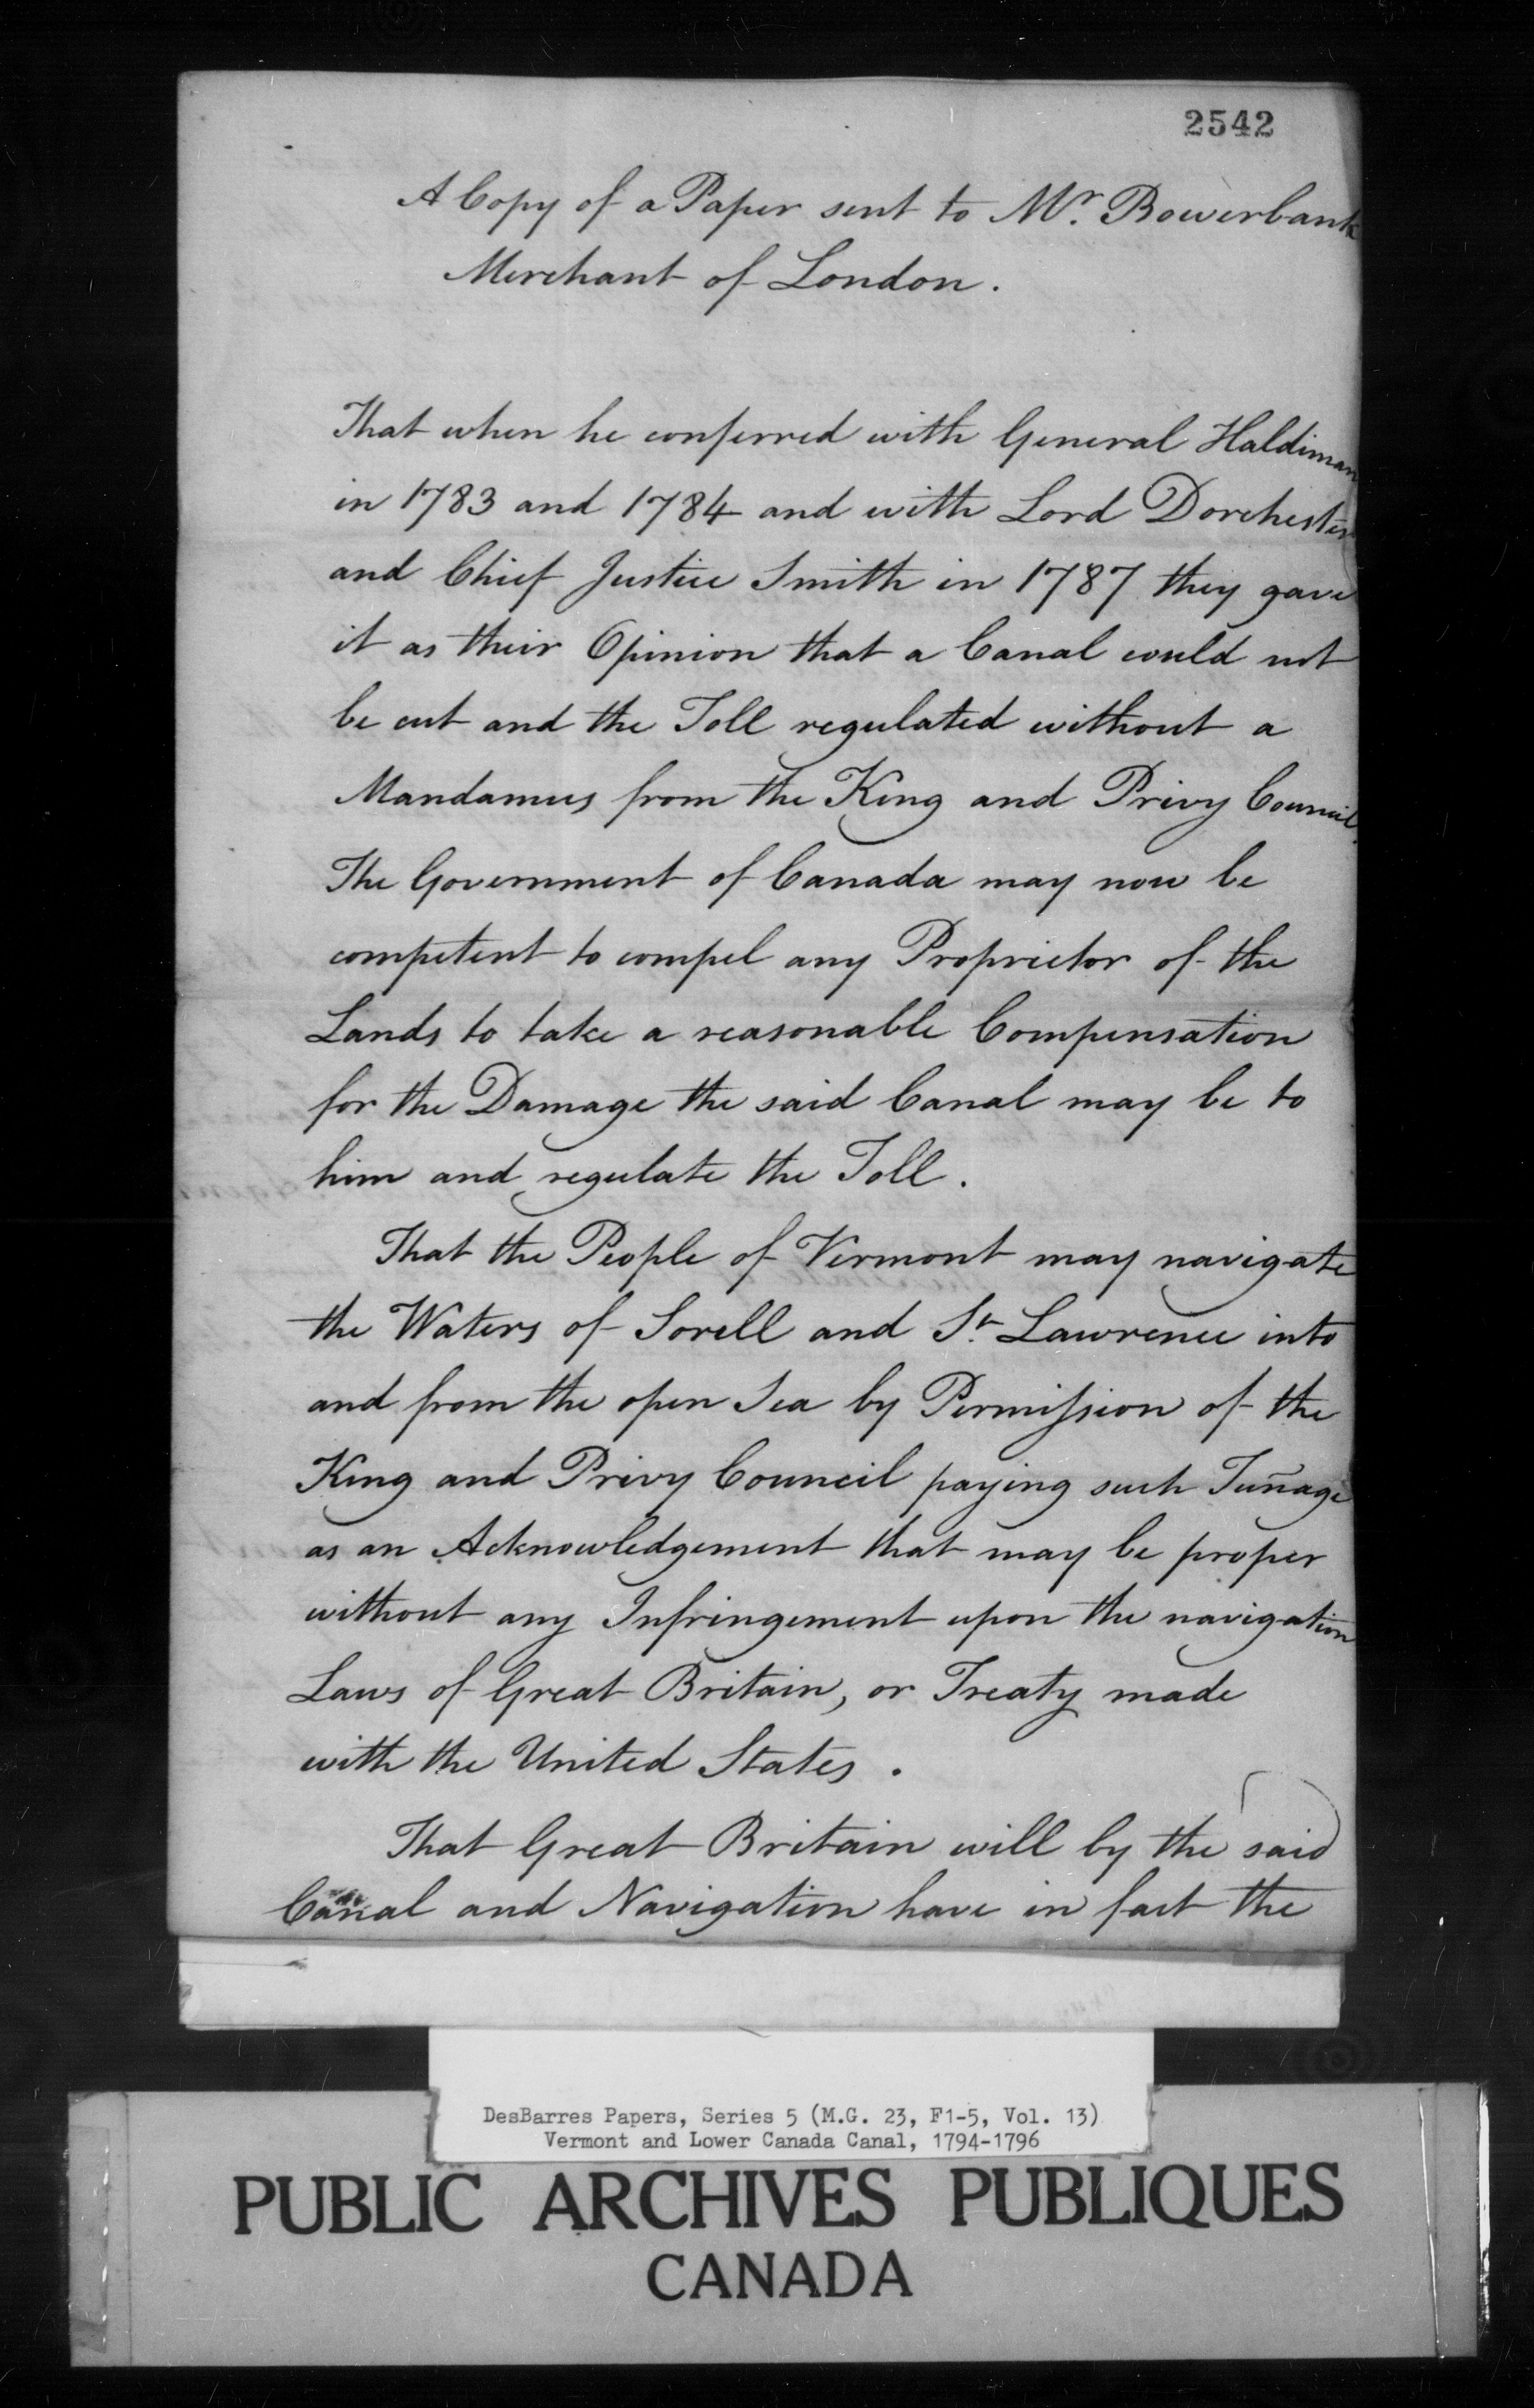 2542
A Copy of a Paper sent to Mr. Bowerbank
Merchant of London.
That when he conferred with General Haldiman
in 1783 and 1784 and with Lord Dorchester
and Chief Justice Smith in 1787 they gave
it as their Opinion that a Canal could not
be cut and the Toll regulated without a
Mandamus from the King and Privy Council.
The Government of Canada may now be
competent to compel any Proprietor of the
Lands to take a reasonable Compensation
for the Damage the said Canal may be to
him and regulate the Toll.
That the People of Vermont may navigate
the Waters of Sorell and St. Lawrence into
and from the open Sea by Permission of the
King and Privy Council paying such Tuñage
as an Acknowledgement that may be proper
without any Infringement upon the navigation
Laws of Great Britain, or Treaty made
with the United States.
That Great Britain will by the said
Canal and Navigation have in fact the
DesBarres Papers, Series 5 (M.G. 23, F1-5, Vol. 13)
Vermont and Lower Canada Canal, 1794-1796
PUBLIC ARCHIVES PUBLIQUES
CANADA